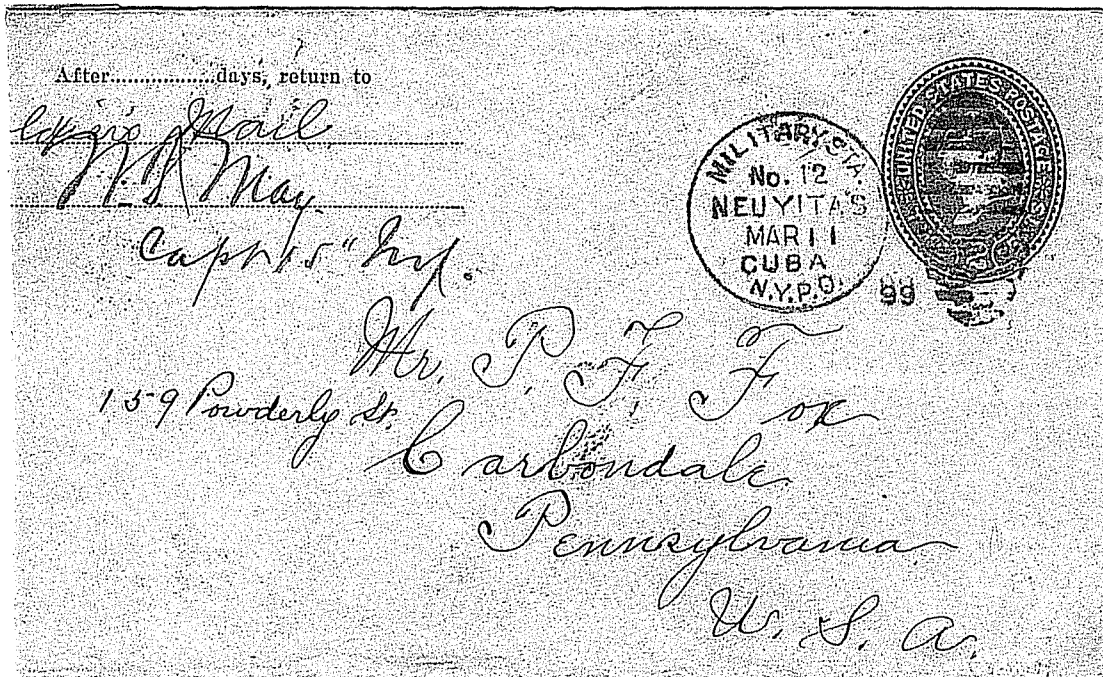 After.................days, return to
Mail
W. S. May.
Capt 15" Inf.
MILITARY STA.
No. 12
NEUYITAS
MAR 11
CUBA
N.Y.P.O.
99
UNITED STATES POSTAGE
Mr. P. F. Fox
159 Powderly St.
Carbondale
Pennsylvania
U. S. A.